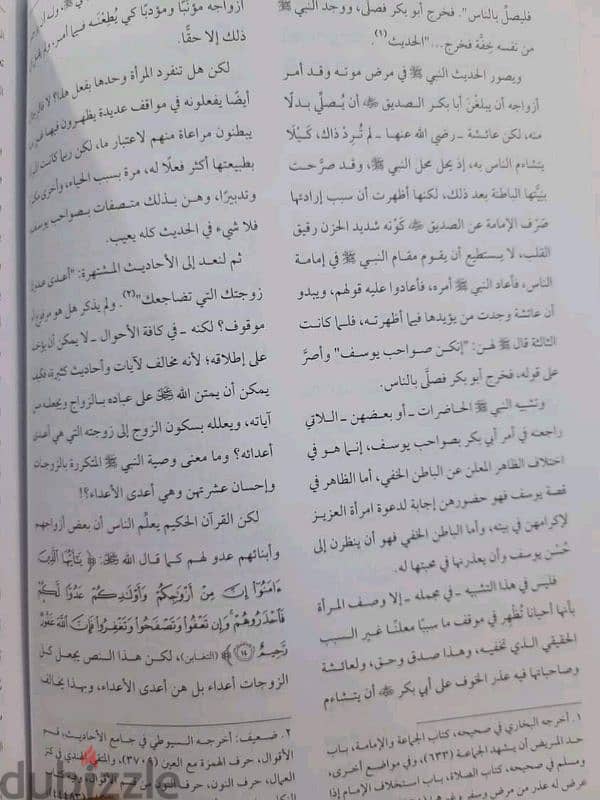 فليصلِّ بالناس". فخرج أبو بكر فصلَّى، ووجد النبي ﷺ
من نفسه خِفَّة فخرج..." الحديث(١).
ويصور الحديث النبي ﷺ في مرض موته وقد أمر
أزواجه أن يبلغنَ أبا بكر الصديق ﷺ أن يُصلِّي بدلًا
منه، لكن عائشة ـ رضي الله عنها ـ لم تُرِدْ ذاك، كَيْلا
يتشاءم الناس به، إذ يحل محل النبي ﷺ، وقد صرَّحت
بنِيَّتِها الباطنة بعد ذلك، لكنها أظهرت أن سبب إرادتها
صَرْف الإمامة عن الصديق ﷺ كَوْنه شديد الحزن رقيق
القلب، لا يستطيع أن يقوم مقام النبي ﷺ في إمامة
الناس، فأعاد النبي ﷺ أمره، فأعادوا عليه قولهم، ويبدو
أن عائشة وجدت من يؤيدها فيما أظهرته، فلما كانت
الثالثة قال ﷺ لهن: "إنكن صواحب يوسف" وأصرَّ
على قوله، فخرج أبو بكر فصلَّى بالناس.
وتشبيه النبي ﷺ الحاضرات ـ أو بعضهن ـ اللاتي
راجعنه في أمر أبي بكر بصواحب يوسف، إنما هو في
اختلاف الظاهر المعلن عن الباطن الخفي، أما الظاهر في
قصة يوسف فهو حضورهن إجابة لدعوة امرأة العزيز
لإكرامهن في بيته، وأما الباطن الخفي فهو أن ينظرن إلى
حُسْن يوسف وأن يعذرنها في محبتها له.
فليس في هذا التشبيه ـ في مجمله ـ إلا وصف المرأة
بأنها أحيانا تُظهر في موقف ما سببًا معلنًا غير السبب
الحقيقي الذي تخفيه، وهذا صدق وحق، ولعائشة
وصاحباتها فيه عذر الخوف على أبي بكر ﷺ أن يتشاءم
١. أخرجه البخاري في صحيحه، كتاب الجماعة والإمامة، باب
حد المريض أن يشهد الجماعة (٦٣٣)، وفي مواضع أخرى،
ومسلم في صحيحه، كتاب الصلاة، باب استخلاف الإمام إذا
عرض له عذر من مرض وسفر
أزواجه مؤنِّبًا ومؤدبًا كي يُطِعْنَه فيما أمر،
ذلك إلا حقًّا.
لكن هل تنفرد المرأة وحدها بفعل هذا؟ لا
أيضًا يفعلونه في مواقف عديدة يظهرون فيها
يبطنون مراعاة منهم لاعتبار ما، لكن ربما كانت
بطبيعتها أكثر فعلًا له، مرة بسبب الحياء، وأخرى
وتدبيرًا، وهن بذلك متصفات بصواحب يوسف،
فلا شيء في الحديث كله يعيب.
ثم لنعد إلى الأحاديث المشتهرة: "أعدى عدوك
زوجتك التي تضاجعك"(٢). ولم يذكر هل هو مرفوع أو
موقوف؟ لكنه ـ في كافة الأحوال ـ لا يمكن أن يؤخذ
على إطلاقه؛ لأنه مخالف لآيات وأحاديث كثيرة، فكيف
يمكن أن يمتن الله ﷻ على عباده بالزواج ويجعله من
آياته، ويعلله بسكون الزوج إلى زوجته التي هي أعدى
أعدائه؟ وما معنى وصية النبي ﷺ المتكررة بالزوجات
وإحسان عشرتهن وهي أعدى الأعداء؟!
لكن القرآن الحكيم يعلِّم الناس أن بعض أزواجهم
وأبنائهم عدو لهم كما قال الله ﷻ: ﴿ يَٰٓأَيُّهَا ٱلَّذِينَ
ءَامَنُوٓا۟ إِنَّ مِنْ أَزْوَٰجِكُمْ وَأَوْلَٰدِكُمْ عَدُوًّا لَّكُمْ
فَٱحْذَرُوهُمْ ۚ وَإِن تَعْفُوا۟ وَتَصْفَحُوا۟ وَتَغْفِرُوا۟ فَإِنَّ ٱللَّهَ غَفُورٌ
رَّحِيمٌ ﴿١٤﴾ ﴾ (التغابن)، لكن هذا النص يجعل كل
الزوجات أعداء بل هن أعدى الأعداء، وبهذا يخالف
٢. ضعيف: أخرجه السيوطي في جامع الأحاديث، قسم
الأقوال، حرف الهمزة مع العين (٣٧٠٩)، والمتقي الهندي في كنز
العمال، حرف النون،
dubizzle